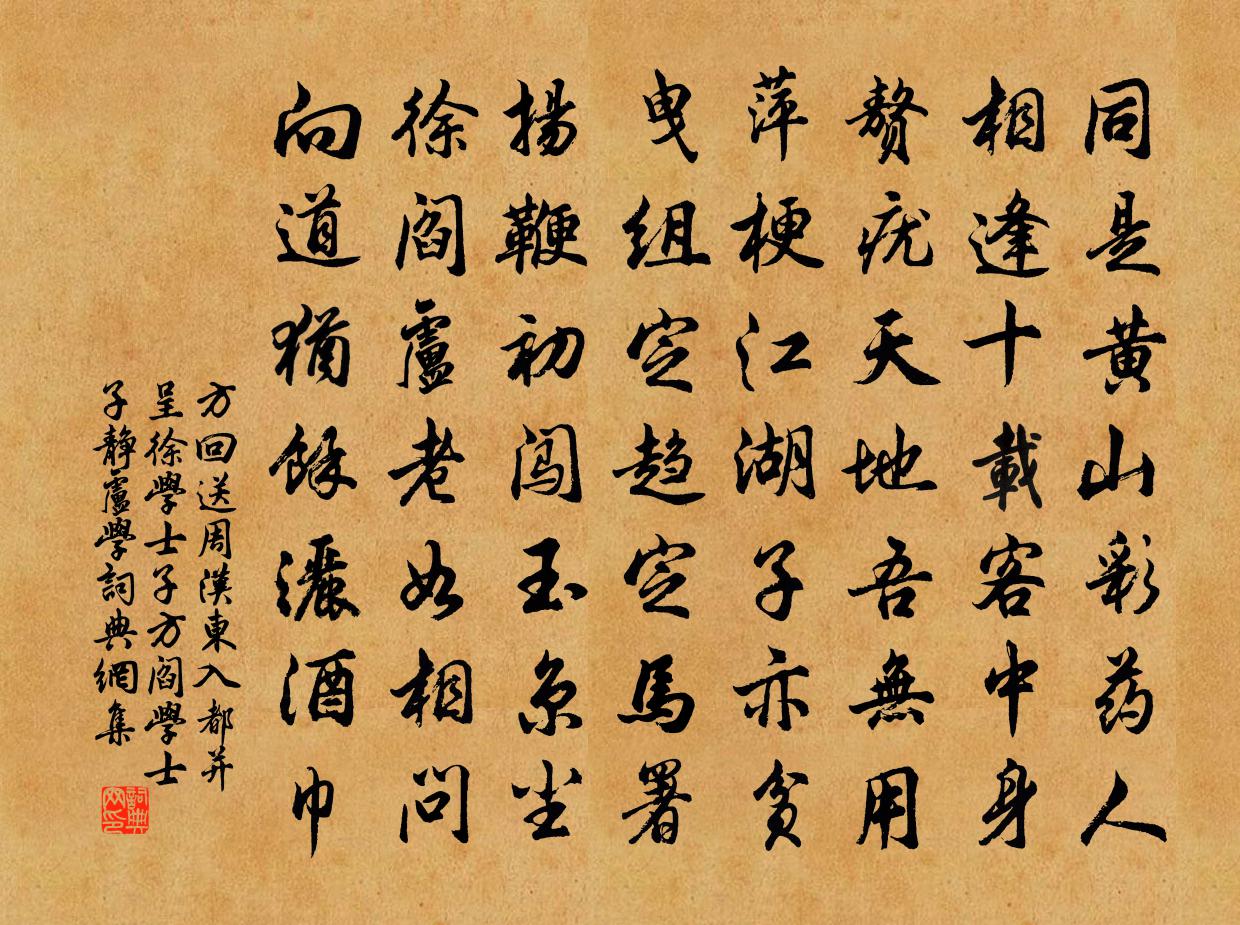 同是黄山彩药人
相逢十載客中身
贅疣天地吾無用
萍梗江湖子亦貧
曳組定趋定馬署
揚鞭初闯玉京尘
徐閻盧老如相問
向道猶餘灑酒巾
方回送周漢東入都并
呈徐學士子方閻學士
子靜盧學詞典網集
詞典网印